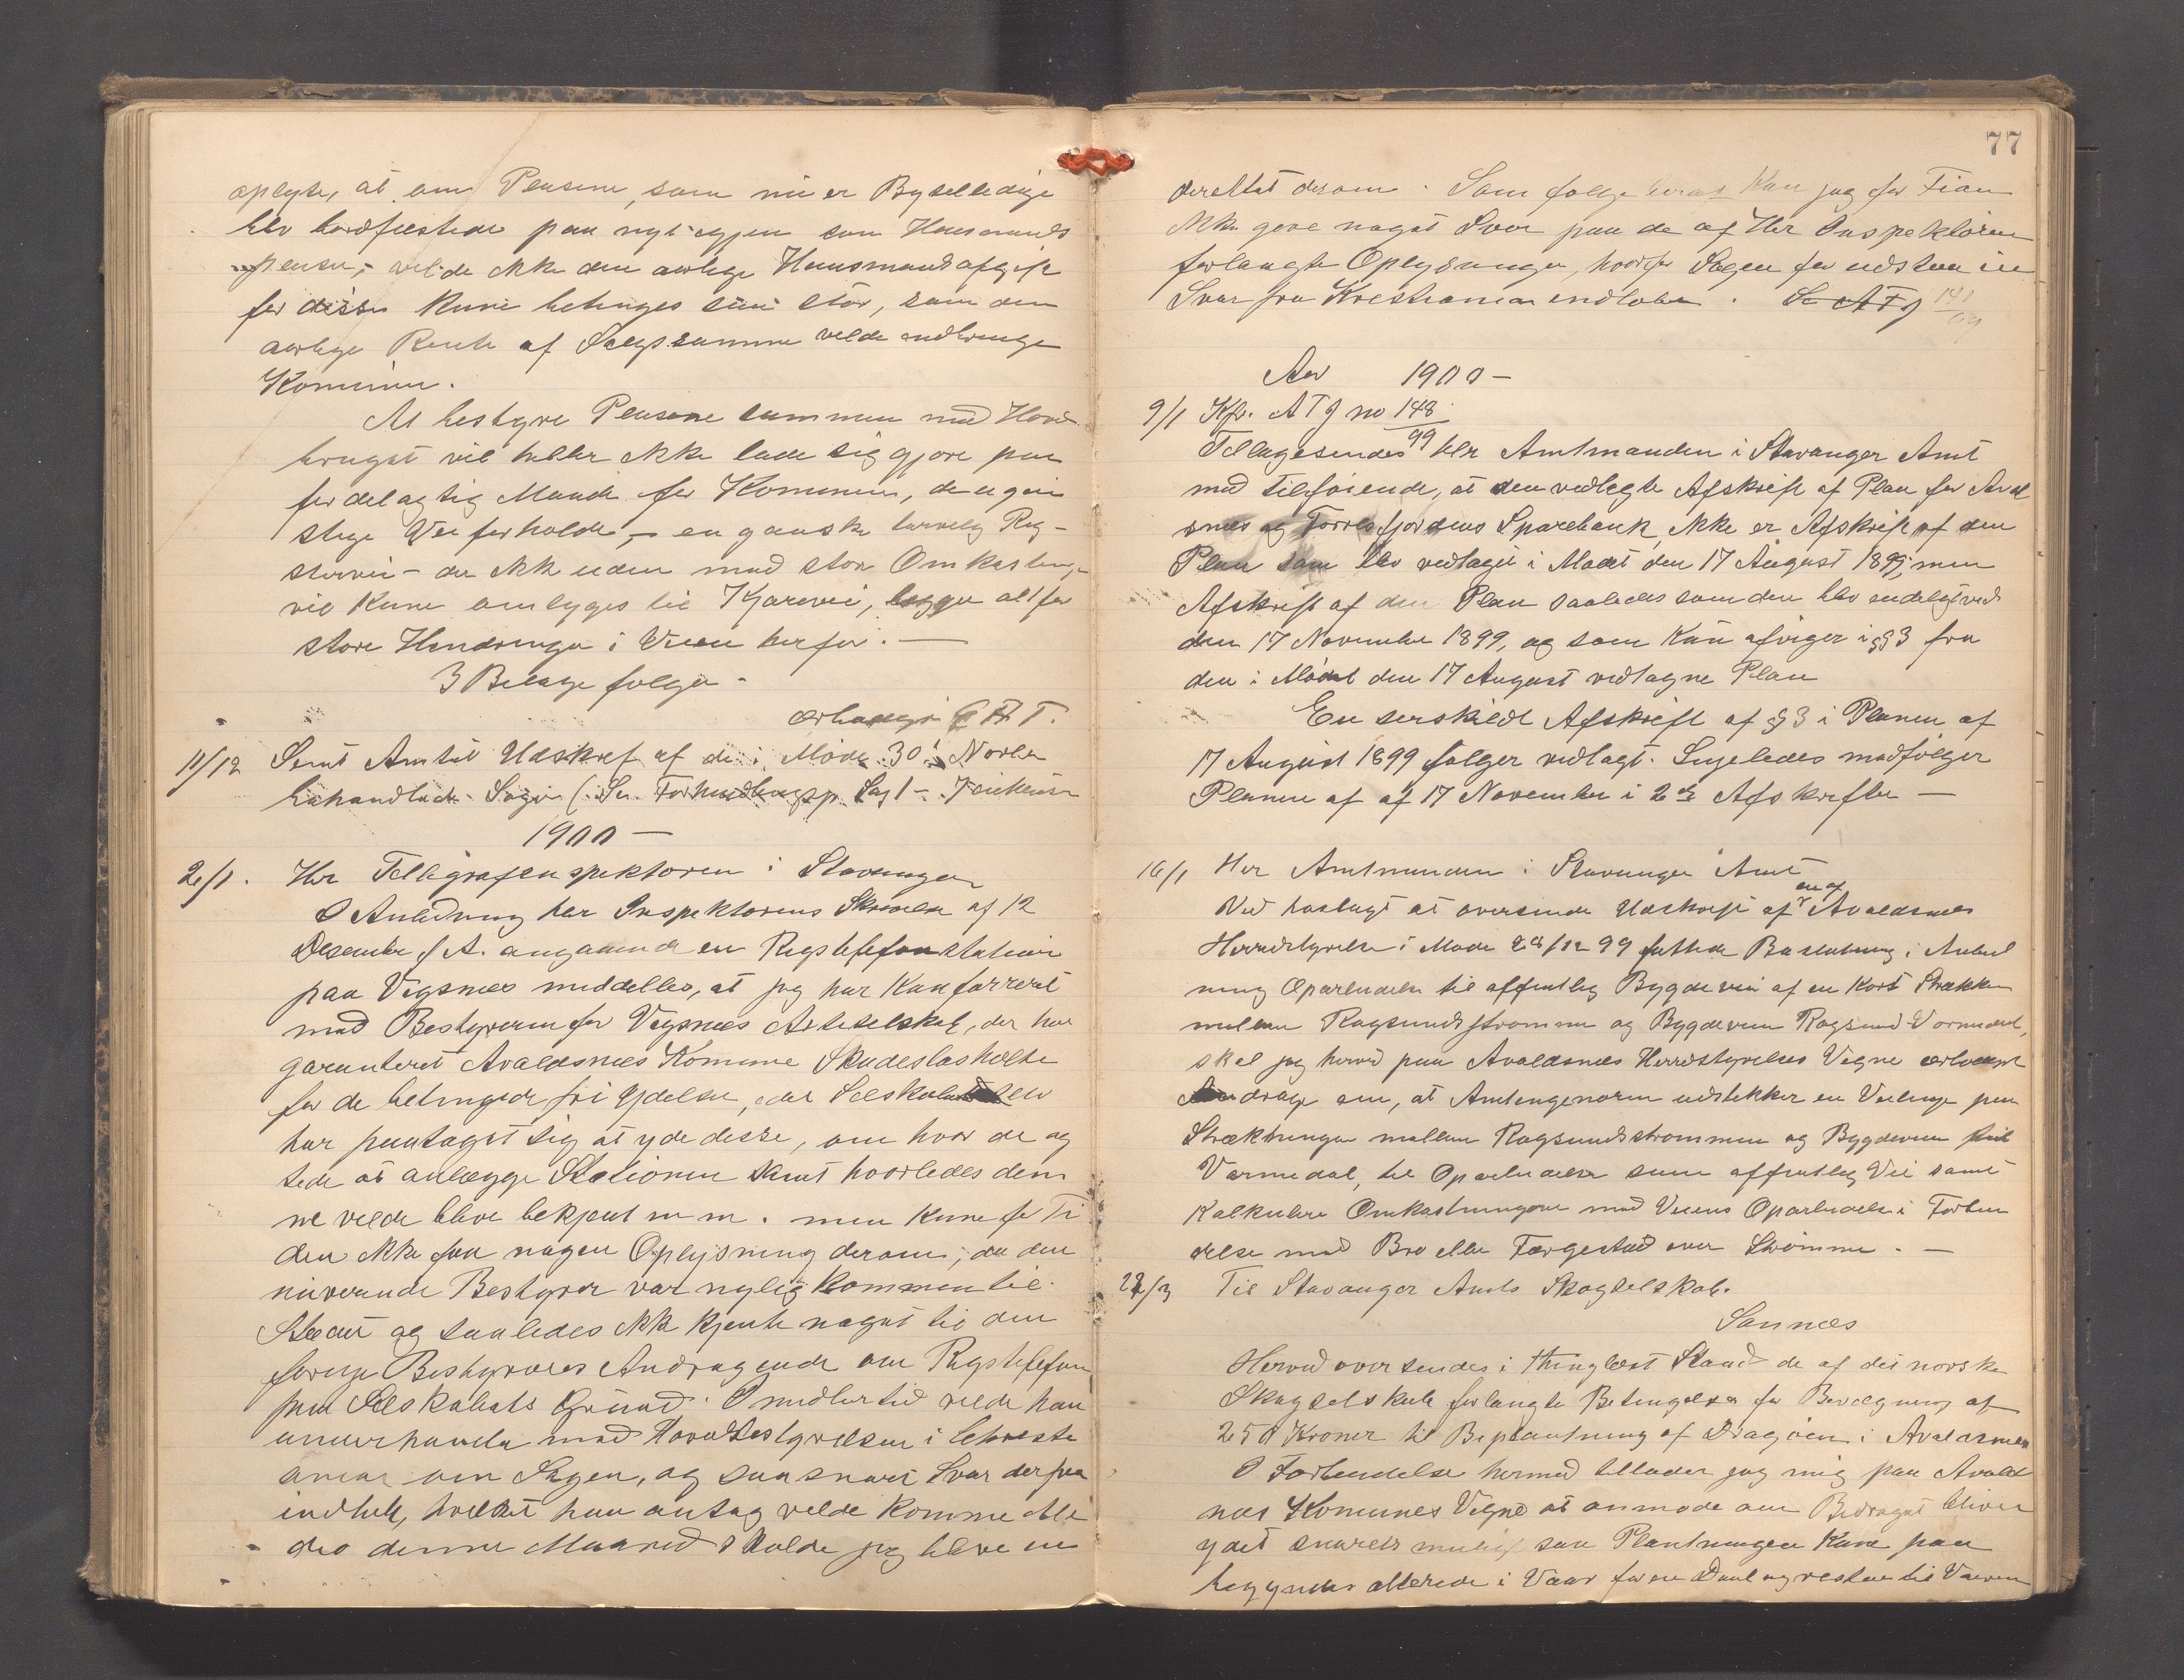 oplyse, at om Pladsene, som nu er Byselledige
blev bordfæstede paa nyt igjen som Husmands
pladser, vilde ikke den aarlige Husmandsafgift
for disse kune betinges saa stor, som den
aarlige Rente af Salgssummen vilde indbringe
Komunen.
At bestyre Pladsene sammen med Hoved
bruget vil heller ikke lade sig gjøre paa
fordelagtig Maade for Komunen, de ugun
stige Veiforholde, – en ganske
– der ikke uden med stor Omkostning
vil kune ombygges til Kjørevei, lægger altfor
store Hindringer i Veien herfor. –
3 Bilage følger –
ærbødigst
11/12 Sendt Amtet Udskrift af de i Møde 30' Novbr
behandlede Sager (Se Forhandlingsp. Sag 1 –
1900 –
2/1. Hr Telegrafinspektøren i Stavanger
I Anledning Herr Inspektørens Skrivelse af 12
Desember f A. angaaende en Rigstelefonstation
paa Vigsnæs meddeles, at jeg har Konfarreret
med Bestyreren for Vigsnæs Aktieselskab, der har
garanteret Avaldsnæs Komune Skadesløsholdte
for de betingede fri Ydelser, om Selskabet
har paataget sig at yde disse, om hvor de ag
tede at anlægge Stationen samt hvorledes den
ne vilde blive betjent m m. men kune for Ti
den ikke faa nogen Oplysning derom, da den
nuværende Bestyrer var nylig kommen til
Stedet og saaledes ikke kjente noget til den
forrige Bestyreres Andragende om Rigstelefon
paa Selskabets Grund. Imidlertid vilde han
underhandle med Hovedbestyrelsen i
om Sagen, og saasnart Svar derpaa
indhentet, hvilket han antog vilde komme
denne Maaned skulde jeg blive un
77
derrettet derom. Som følge heraf kan jeg for Tiden
ikke give noget Svar paa de af Hr Inspektøren
forlangte Oplysninger, hvorfor Sagen faar udstaa til
Svar fra Kristiania indløber. Se A T J 141/99
Aar 1900 –
9/1 Kfr. A T J no 148/99
Tilbagesendes Hr Amtmanden i Stavanger Amt
med tilføiende, at den vedlagte Afskrift af Plan for Avald
snæs og Førresfjordens Sparebank ikke er Afskrift af den
Plan som blev vedtaget i Mødet den 17 August 1899, men
Afskrift af den Plan saaledes som den blev endeligt ved
den 17 November 1899, og som kun afviger i § 3 fra
den i Mødet den 17 August vedtagne Plan
En særskildt Afskrift af § 3 i Planen af
17 August 1899 følger vedlagt. Ligeledes medfølger
Planen af af 17 November i 2de Afskrifter –
16/1 Herr Amtmanden i Stavanger Amt
Ved hoslagt at oversende Udskrift af en af Avaldsnæs
Herredstyrelse i Møde 28/12 99 fattede Beslutning i Anled
ning Oparbeidelse til offentlig Bygdevei af en kort Strækkn
mellem Ragsundstrømmen og Bygdeveien Ragsund-Vormedal,
skal jeg herved paa Avaldsnæs Herredstyrelses Vegne ærbødigst
Andrage om, at Amtingeniøren udstikker en Veilinje paa
Strækningen mellem Ragsundstrømmen og Bygdeveien til
Vormedal, til Oparbeidelse som offentlig Vei samt
kalkulere Omkostningerne med Veiens Oparbeidelse i Forbin
delse med Bro eller Færgestad over Strømmen. –
22/3 Til Stavanger Amts Skogselskab.
Sannæs
Herved oversendes i thinglæst Stand de af det norske
Skogselskab forlangte Betingelser for Bevilgning af
250 Kroner til Beplantning af Dragøien i Avaldsnæs
I Forbindelse hermed tillader jeg mig paa Avald
næs Komunes Vegne at anmode om Bidraget bliver
ydet snarest mulig saa Plantningen kan paa
begyndes allerede i Vaar for en Deel og resten til Vaaren